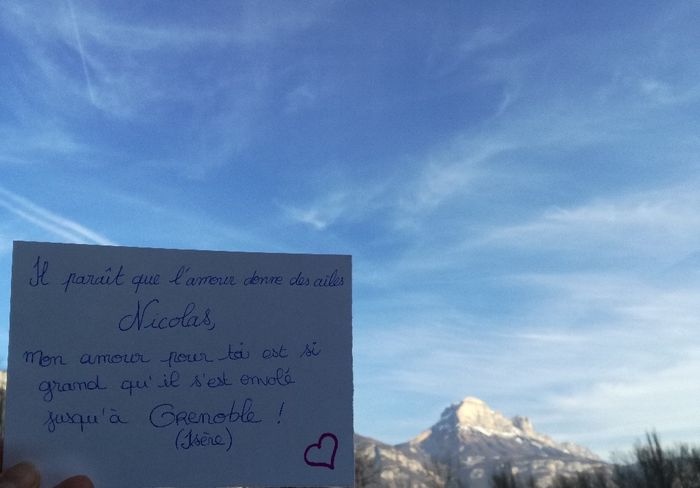 Il paraît que l'amour donne des ailes
Nicolas,
mon amour pour toi est si
grand qu'il s'est envolé
jusqu'à Grenoble !
(Isère)